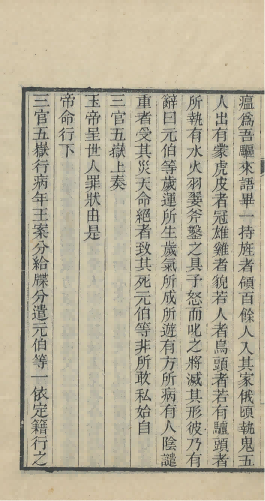 瘟爲吾驅來語畢一持旌者領百餘人入其家俄頃執鬼五
人出有蒙虎皮者冠雄雞者貌若人者烏頭者若有驢頭者
所執有水火羽嬰斧鑿之具予怒而叱之將減其形彼乃有
辭曰元伯等歲運所生歲氣所成所遊有方所病有人陰譴
重者受其災天命絕者致其死元伯等非所敢私始自
三官五嶽上奏
玉帝呈世人罪狀由是
帝命行下
三官五嶽行病年王案分給牒分遣元伯等一依定籍行之